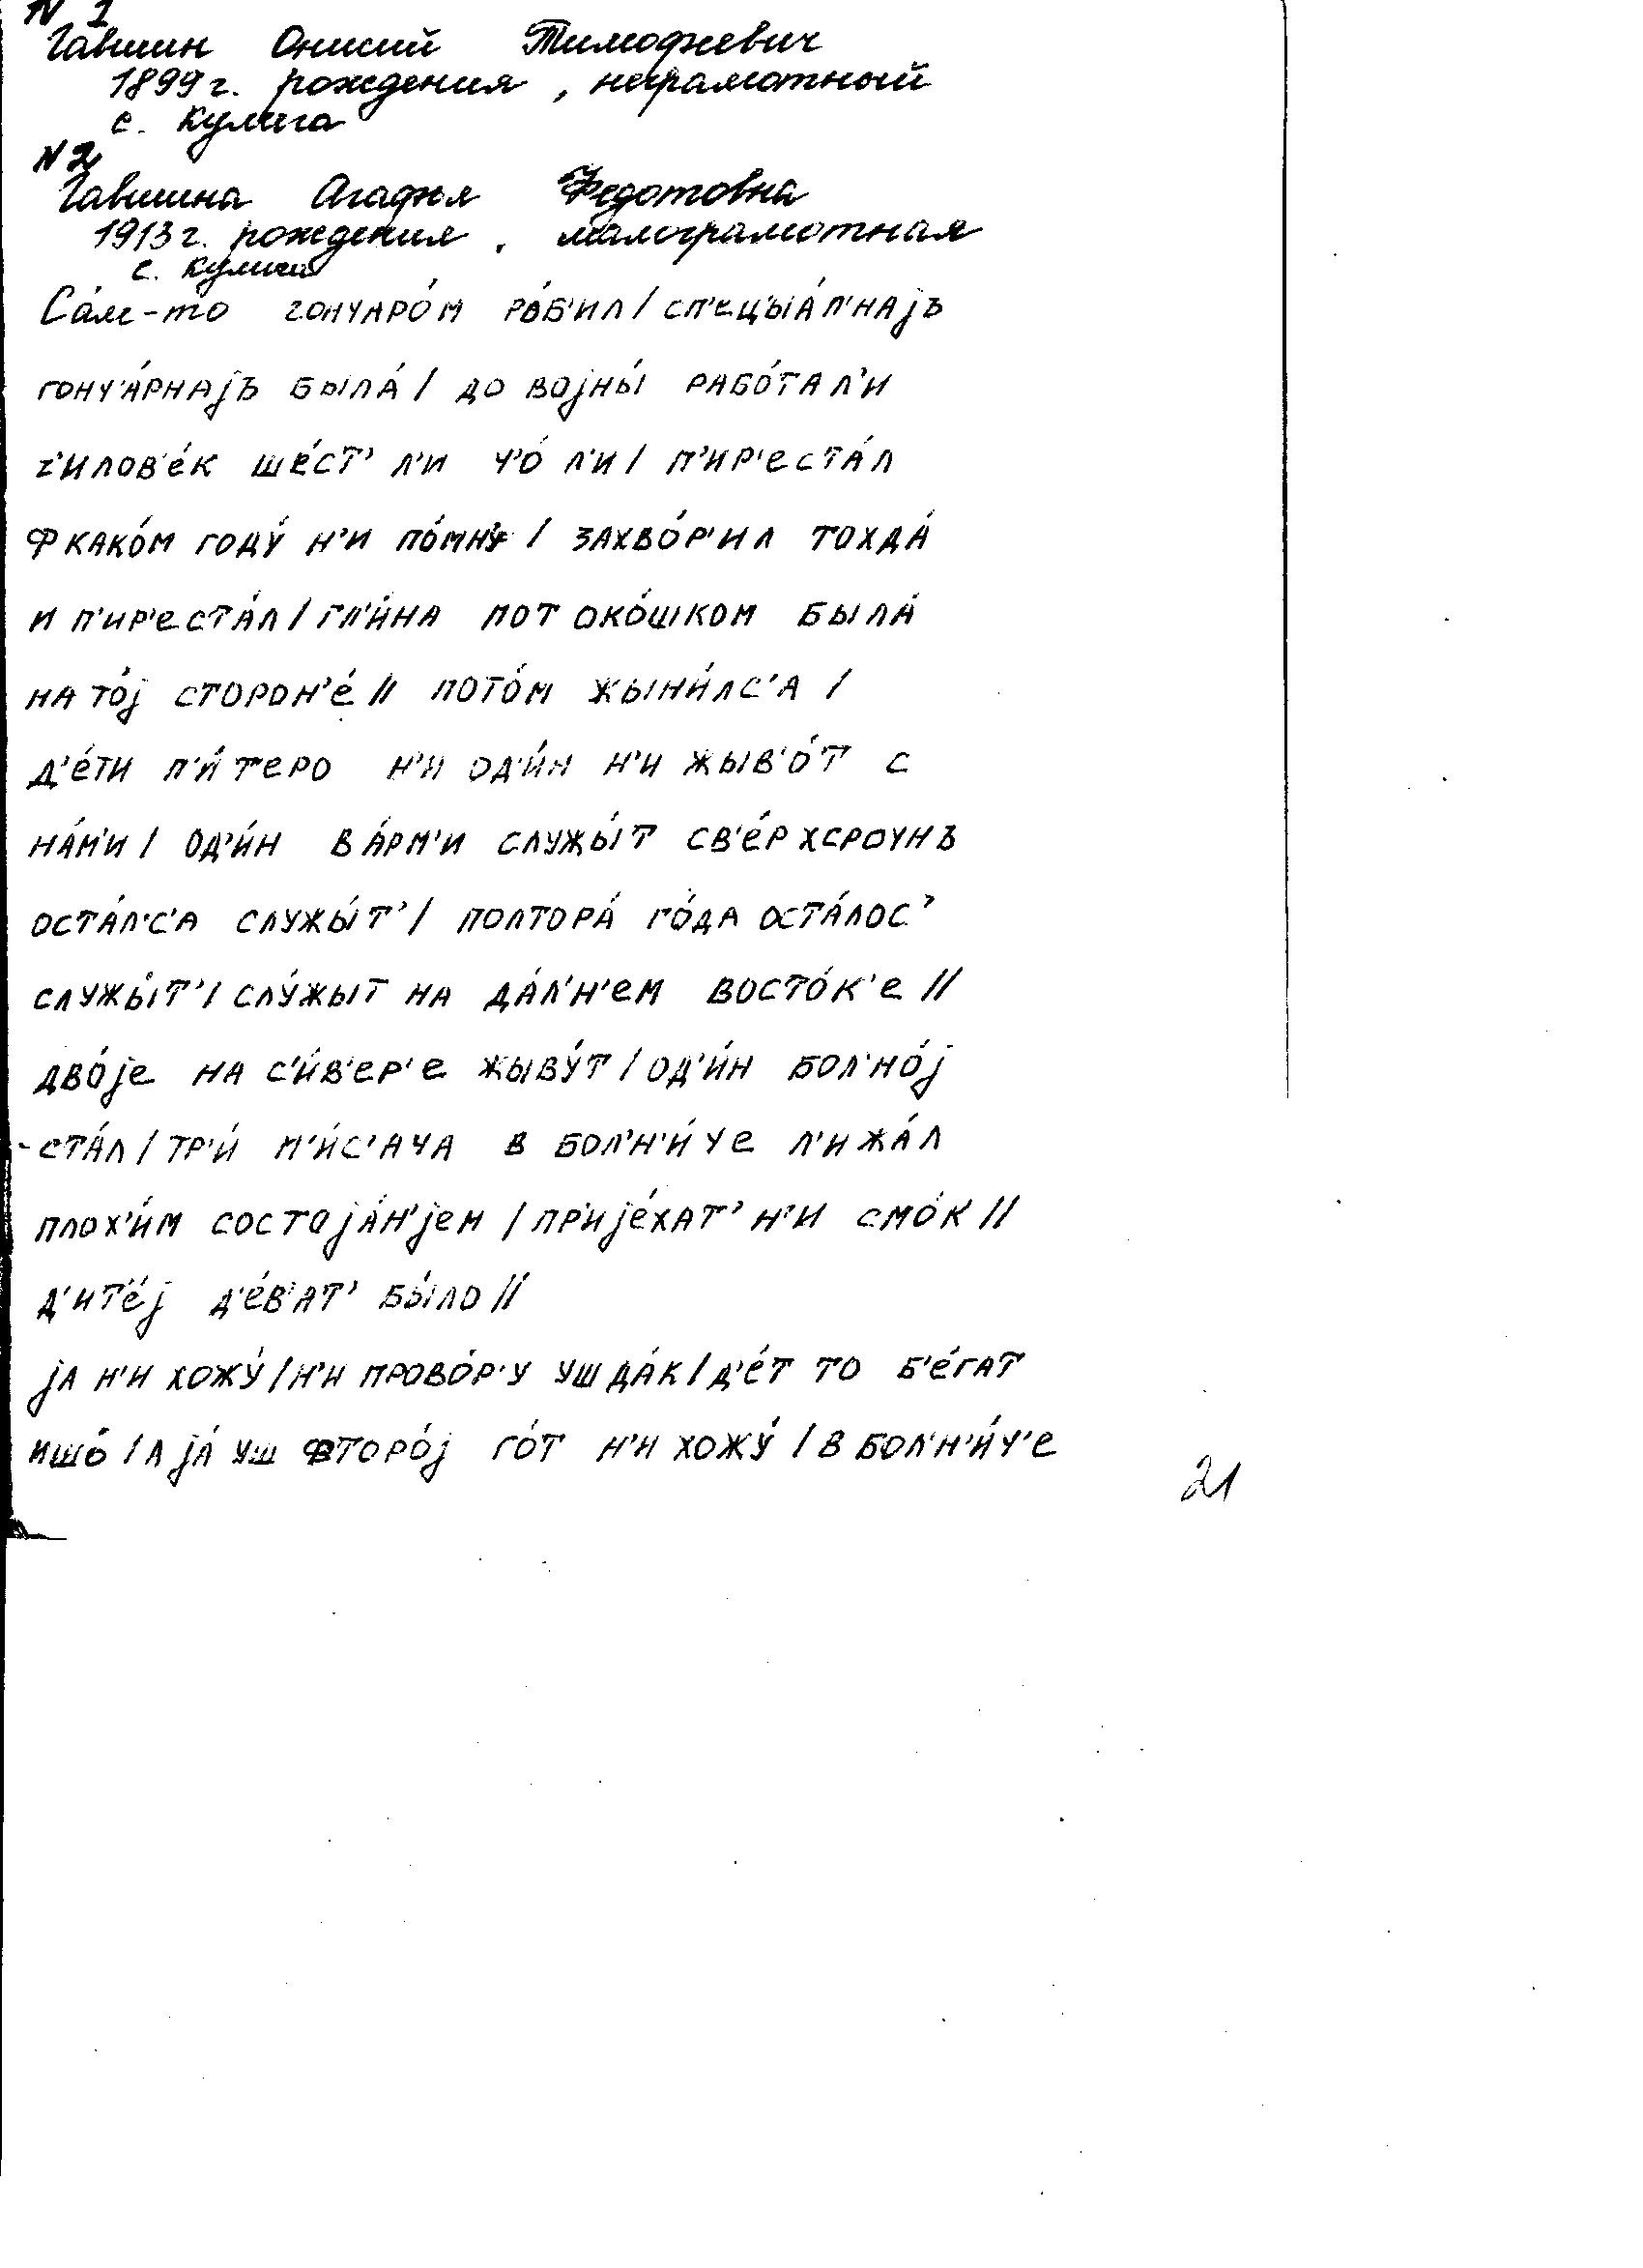 N 1
Гавшин Онисий Тимофеевич
1899 г. рождения, неграмотный
с. Кулига
N 2
Гавшина Агафья Федотовна
1913 г. рождения, малограмотная
с. Кулига
Са́м-то гончаро́м ро́б'ил / сп'ецыа́л'најъ
гонч'а́рнајъ была́ / до војны́ рабо́тал'и
ч'илов'е́к ше́ст' л'и ч'о́ л'и / п'ир'еста́л
ф како́м году́ н'и по́мну / захво́р'ил тохда́
и п'ир'еста́л / гл'и́на пот око́шком была́
на то́ј сторон'е́ // пото́м жыни́лс'а /
д'е́ти п'и́т'еро н'и од'и́н н'и жыв'о́т с
на́м'и / од'и́н в а́рм'и служы́т св'е́рхсрочнъ
оста́л'с'а служы́т' / полтора́ го́да оста́лос'
служы́т' / слу́жыт на да́л'н'ем восто́к'е //
дво́је на с'и́в'ер'е жыву́т / од'и́н бол'но́ј
-ста́л / тр'и́ м'и́с'ача в бол'н'и́че л'ижа́л
плох'и́м состоја́н'јем / пр'ије́хат' н'и смо́к //
д'ит'е́ј д'е́в'ат' бы́ло //
ја н'и хожу́ / н'и прово́р'у уш да́к / д'е́т то б'е́гат
ишо́ / а ја́ уш фторо́ј го́т н'и хожу́ / в бол'н'и́ч'е
21